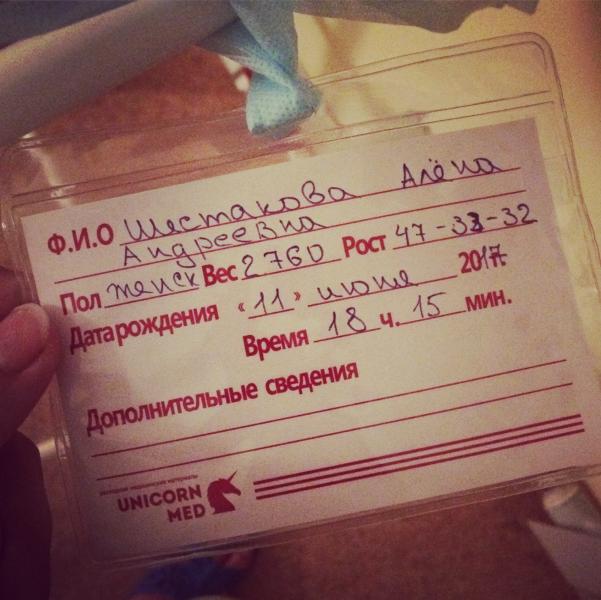 Ф.И.О Шестакова Алёна
Андреевна
Пол женск Вес 2760 Рост 47-33-32
Дата рождения «11» июня 2017
Время 18 ч. 15 мин.
Дополнительные сведения
UNICORN
MED